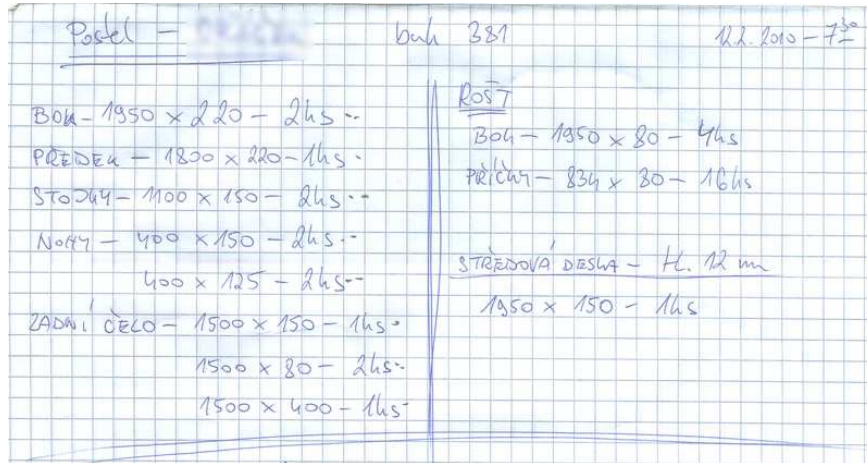 Postel –
buk 381
12.2.2010 – 7³⁰
BOK – 1950 × 220 – 2ks ··
PŘEDEK – 1800 × 220 – 1ks ·
STOJKY – 1100 × 150 – 2ks ··
NOHY – 400 × 150 – 2ks ··
400 × 125 – 2ks ··
ZADNÍ ČELO – 1500 × 150 – 1ks ·
1500 × 80 – 2ks ··
1500 × 400 – 1ks ·
ROŠT
BOK – 1950 × 80 – 4ks
PŘÍČKY – 834 × 80 – 16ks
STŘEDOVÁ DESKA – tl. 12 mm
1950 × 150 – 1ks